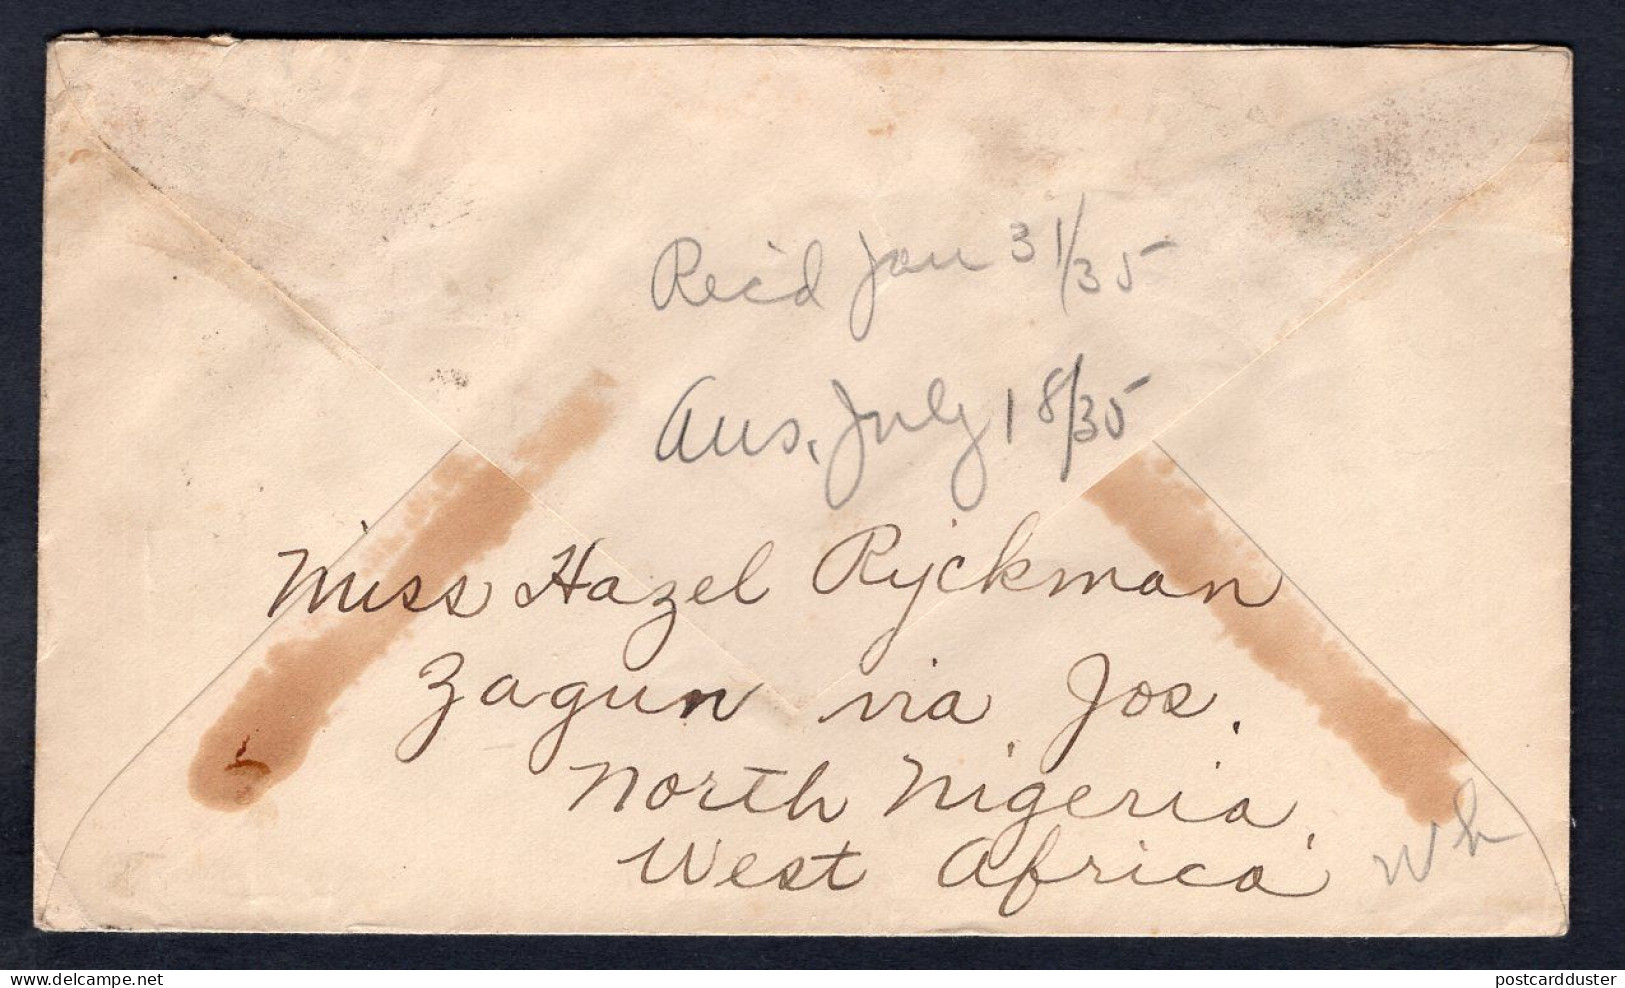 Rec'd Jan 31/35
Ans, July 18/35
Miss Hazel Ryckman
Zagun via Jos.
North Nigeria,
West Africa
postcardduster